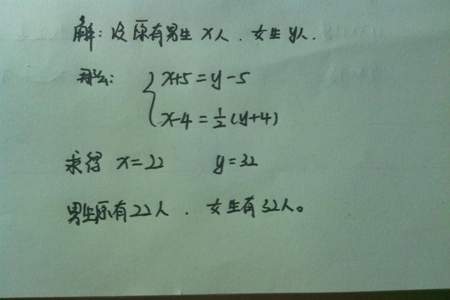 解:设原有男生x人.女生y人.
那么: { x+5=y-5
x-4=1/2(y+4)
求得 x=22 y=32
男生原有22人.女生有32人。